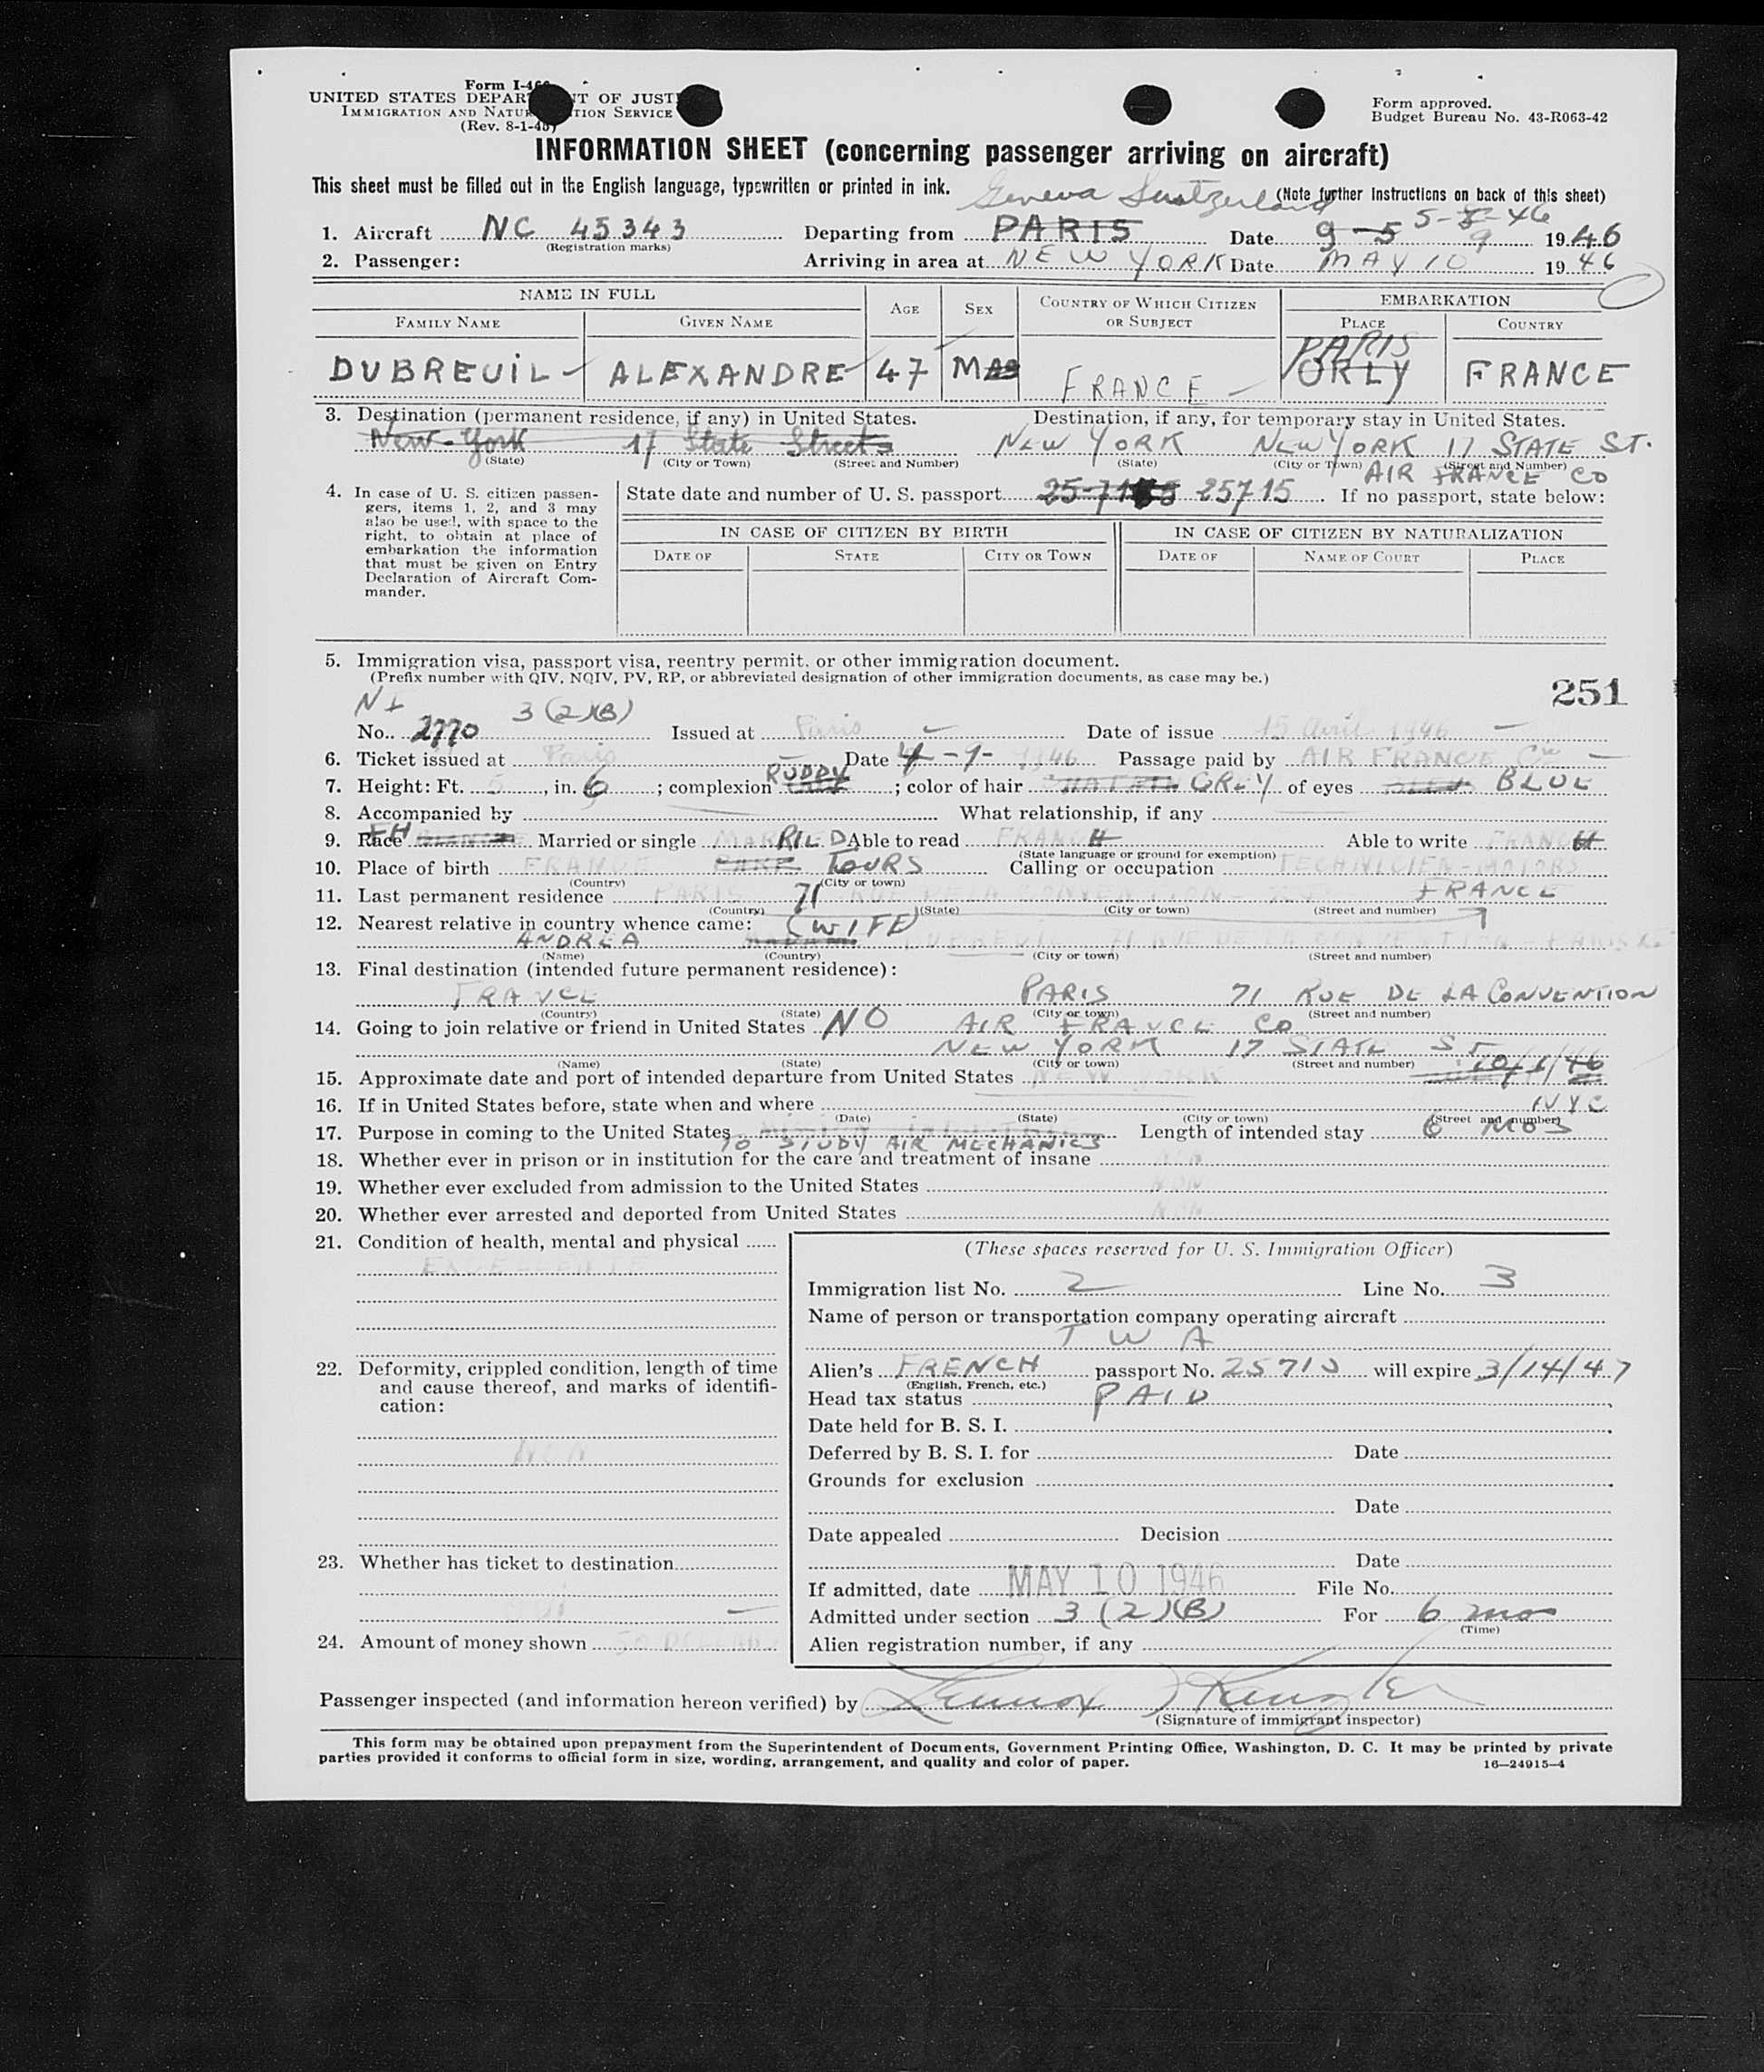 Form I-466
UNITED STATES DEPARTMENT OF JUSTICE
IMMIGRATION AND NATURALIZATION SERVICE
(Rev. 8-1-45)
Form approved.
Budget Bureau No. 43-R063-42
INFORMATION SHEET (concerning passenger arriving on aircraft)
This sheet must be filled out in the English language, typewritten or printed in ink.
(Note further instructions on back of this sheet)
Geneva Switzerland
1. Aircraft NC 45343 Departing from PARIS Date 9-5 5-8-46 9 1946
(Registration marks)
2. Passenger: Arriving in area at NEW YORK Date MAY 10 1946
NAME IN FULL AGE SEX COUNTRY OF WHICH CITIZEN OR SUBJECT EMBARKATION
FAMILY NAME GIVEN NAME PLACE COUNTRY
PARIS
DUBREUIL ALEXANDRE 47 MAS FRANCE ORLY FRANCE
3. Destination (permanent residence, if any) in United States. Destination, if any, for temporary stay in United States.
New-York 17 State Street NEW YORK NEW YORK 17 STATE ST.
(State) (City or Town) (Street and Number) (State) (City or Town) (Street and Number)
AIR FRANCE CO
4. In case of U. S. citizen passengers, items 1, 2, and 3 may also be used, with space to the right, to obtain at place of embarkation the information that must be given on Entry Declaration of Aircraft Commander.
State date and number of U. S. passport 25715 If no passport, state below:
IN CASE OF CITIZEN BY BIRTH IN CASE OF CITIZEN BY NATURALIZATION
DATE OF STATE CITY OR TOWN DATE OF NAME OF COURT PLACE
5. Immigration visa, passport visa, reentry permit, or other immigration document.
(Prefix number with QIV, NQIV, PV, RP, or abbreviated designation of other immigration documents, as case may be.)
251
3(2)(B)
No. 2770 Issued at Paris Date of issue 15 avril 1946
6. Ticket issued at Paris Date 4-9- 1946 Passage paid by AIR FRANCE Cie
7. Height: Ft. 5, in. 6; complexion RUDDY; color of hair GREY of eyes BLUE
8. Accompanied by What relationship, if any
9. Race FH Married or single MARRIED Able to read FRANCH Able to write FRANCH
(State language or ground for exemption)
10. Place of birth FRANCE TOURS Calling or occupation TECHNICIEN-MOTORS
(Country) (City or town)
11. Last permanent residence PARIS 71 RUE DE LA CONVENTION FRANCE
(Country) (State) (City or town) (Street and number)
12. Nearest relative in country whence came: (WIFE)
ANDREA DUBREUIL 71 RUE DE LA CONVENTION PARIS
(Name) (Country) (City or town) (Street and number)
13. Final destination (intended future permanent residence):
FRANCE PARIS 71 RUE DE LA CONVENTION
(Country) (State) (City or town) (Street and number)
14. Going to join relative or friend in United States NO AIR FRANCE CO
NEW YORK 17 STATE ST
(Name) (State) (City or town) (Street and number)
15. Approximate date and port of intended departure from United States NEW YORK 10/1/46
16. If in United States before, state when and where NYC
(Date) (State) (City or town) (Street and number)
17. Purpose in coming to the United States TO STUDY AIR MECHANICS Length of intended stay 6 MOS
18. Whether ever in prison or in institution for the care and treatment of insane NON
19. Whether ever excluded from admission to the United States NON
20. Whether ever arrested and deported from United States NON
21. Condition of health, mental and physical
EXCELLENTE
(These spaces reserved for U. S. Immigration Officer)
Immigration list No. 2 Line No. 3
Name of person or transportation company operating aircraft
TWA
22. Deformity, crippled condition, length of time and cause thereof, and marks of identification:
NON
Alien's FRENCH passport No. 25715 will expire 3/14/47
(English, French, etc.)
Head tax status PAID
Date held for B. S. I.
Deferred by B. S. I. for Date
Grounds for exclusion
Date
Date appealed Decision
23. Whether has ticket to destination
Date
If admitted, date MAY 10 1946 File No.
OUI
Admitted under section 3(2)(B) For 6 mos
(Time)
24. Amount of money shown 50 DOLLARS
Alien registration number, if any
Passenger inspected (and information hereon verified) by
(Signature of immigrant inspector)
This form may be obtained upon prepayment from the Superintendent of Documents, Government Printing Office, Washington, D. C. It may be printed by private
parties provided it conforms to official form in size, wording, arrangement, and quality and color of paper.
16—24915-4